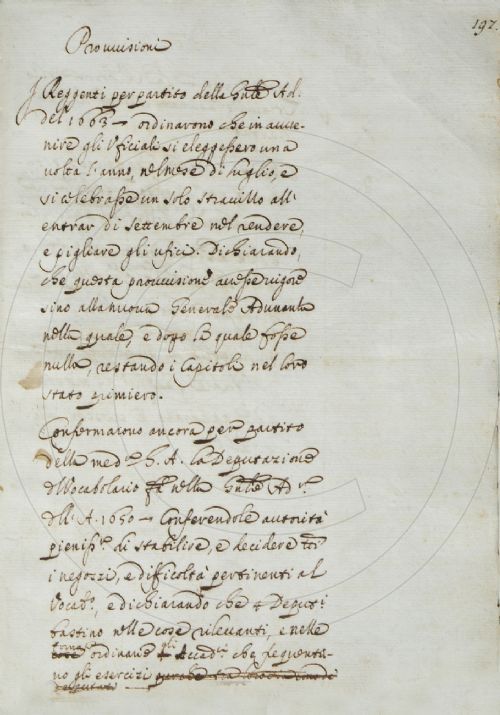 197.
Prouuisioni
I Reggenti per partito della Gnle Ad.
del 1663 ordinarono che in auue-
nire gli Vficiali si eleggessero una
uolta l'anno, nel mese di luglio, e
si celebrasse un solo strauizzo all'
entrar di settembre nel rendere,
e pigliare gli ufici. Dichiarando,
che questa prouuisione auesse uigore
sino alla nuoua Generale Adunanza
nella quale, e dopo la quale fosse
nulla, restando i Capitoli nel loro
stato primiero.
Confermarono ancora per partito
della med.ª G. A. la Deputazione
d Vocabolario nella Gnle Ad.ª
dll. A. 1650 Conferendole autorità
pieniss.ª di stabilire, e decidere tti
i negozzi, e difficoltà pertinenti al
Vocab.º, e dichiarando che 4 Deput.i
bastino nelle cose rileuanti, e nelle
ordinarie 4 gli Accad.i che frequenti-
no gli esercizi
deputati